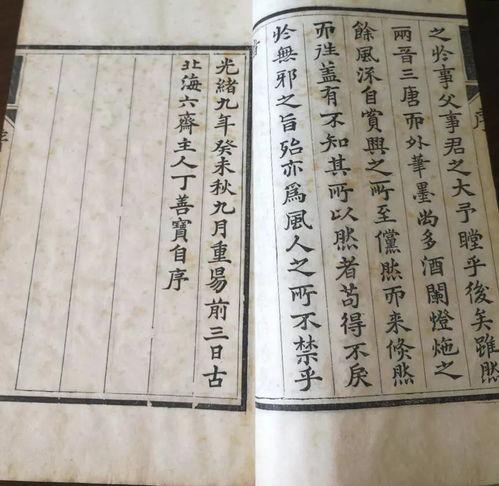 之扵事父事君之大予瞠乎後矣雖然
兩晉三唐而外筆墨尚多酒闌燈炧之
餘風流自賞興之所至儻然而來倐然
而徃盖有不知其所以然者苟得不戾
扵無邪之旨殆亦爲風人之所不禁乎
光緒九年癸未秋九月重昜前三日古
北海六齋主人丁善寶自序